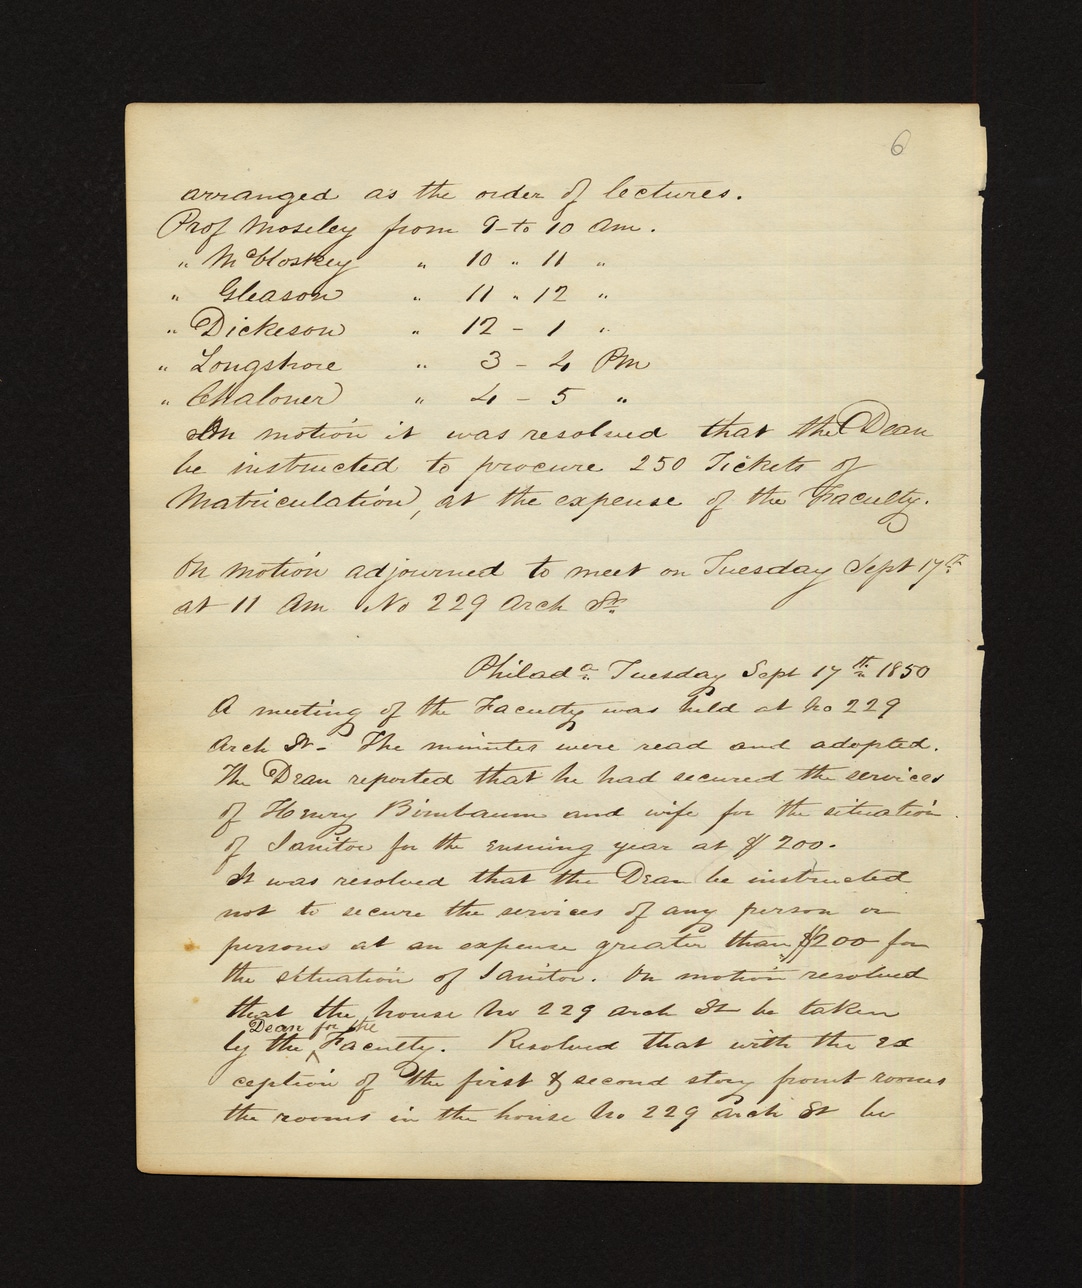 6
arranged as the order of lectures.
Prof Moseley from 9 to 10 Am.
" McCloskey " 10 " 11 "
" Gleason " 11 " 12 "
" Dickeson " 12 - 1 "
" Longshore " 3 - 4 Pm
" Chaloner " 4 - 5 "
On motion it was resolved that the Dean
be instructed to procure 250 Tickets of
Matriculation, at the expense of the Faculty.
On motion adjourned to meet on Tuesday Sept 17th
at 11 Am No 229 Arch St
Philada. Tuesday Sept 17th 1850
A meeting of the Faculty was held at No 229
Arch St - The minutes were read and adopted.
The Dean reported that he had secured the services
of Henry Birnbaum and wife for the situation
of Janitor for the ensuing year at $200.
It was resolved that the Dean be instructed
not to secure the services of any person or
persons at an expense greater than $200 for
the situation of Janitor. On motion resolved
that the house No 229 Arch St be taken
Dean for the
by the ^ Faculty. Resolved that with the ex
ception of the first & second story front rooms
the rooms in the house No 229 Arch St be